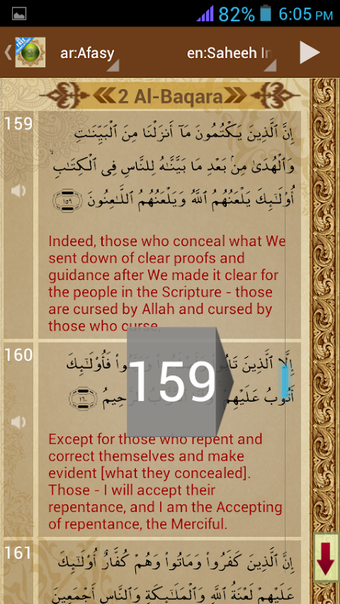 82% 6:05 PM
ar:Afasy en:Saheeh In
2 Al-Baqara
159
إِنَّ ٱلَّذِينَ يَكْتُمُونَ مَآ أَنزَلْنَا مِنَ ٱلْبَيِّنَـٰتِ
وَٱلْهُدَىٰ مِنۢ بَعْدِ مَا بَيَّنَّـٰهُ لِلنَّاسِ فِى ٱلْكِتَـٰبِ ۙ
أُو۟لَـٰٓئِكَ يَلْعَنُهُمُ ٱللَّهُ وَيَلْعَنُهُمُ ٱللَّـٰعِنُونَ ١٥٩
Indeed, those who conceal what We
sent down of clear proofs and
guidance after We made it clear for
the people in the Scripture - those
are cursed by Allah and cursed by
those who curse
160
إِلَّا ٱلَّذِينَ فَأُو۟لَـٰٓئِكَ
أَتُوبُ عَلَيْهِمْ ١٦٠
159
Except for those who repent and
correct themselves and make
evident [what they concealed].
Those - I will accept their
repentance, and I am the Accepting
of repentance, the Merciful.
161
إِنَّ ٱلَّذِينَ كَفَرُوا۟ وَمَاتُوا۟ وَهُمْ كُفَّارٌ أُو۟لَـٰٓئِكَ
عَلَيْهِمْ لَعْنَةُ ٱللَّهِ وَٱلْمَلَـٰٓئِكَةِ وَٱلنَّاسِ أَجْمَعِينَ